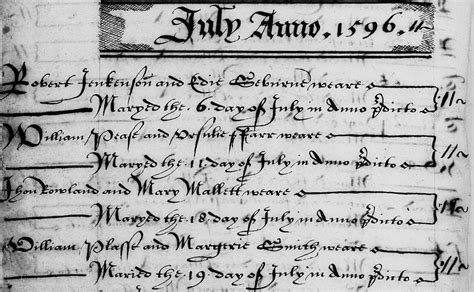 July Anno. 1596.
Robert Jenkenson and Edie weare
Maryed the. 6. day of July in Anno p̄dicto
William Pease and Ursulie ffarr weare
Maryed the. day of July in Anno p̄dicto
Jhon Rowland and Mary Mallett weare
Maryed the. 18. day of July in Anno p̄dicto
William Plasse and Margerie Smith weare
Maried the. 19 day of July in Anno p̄dicto